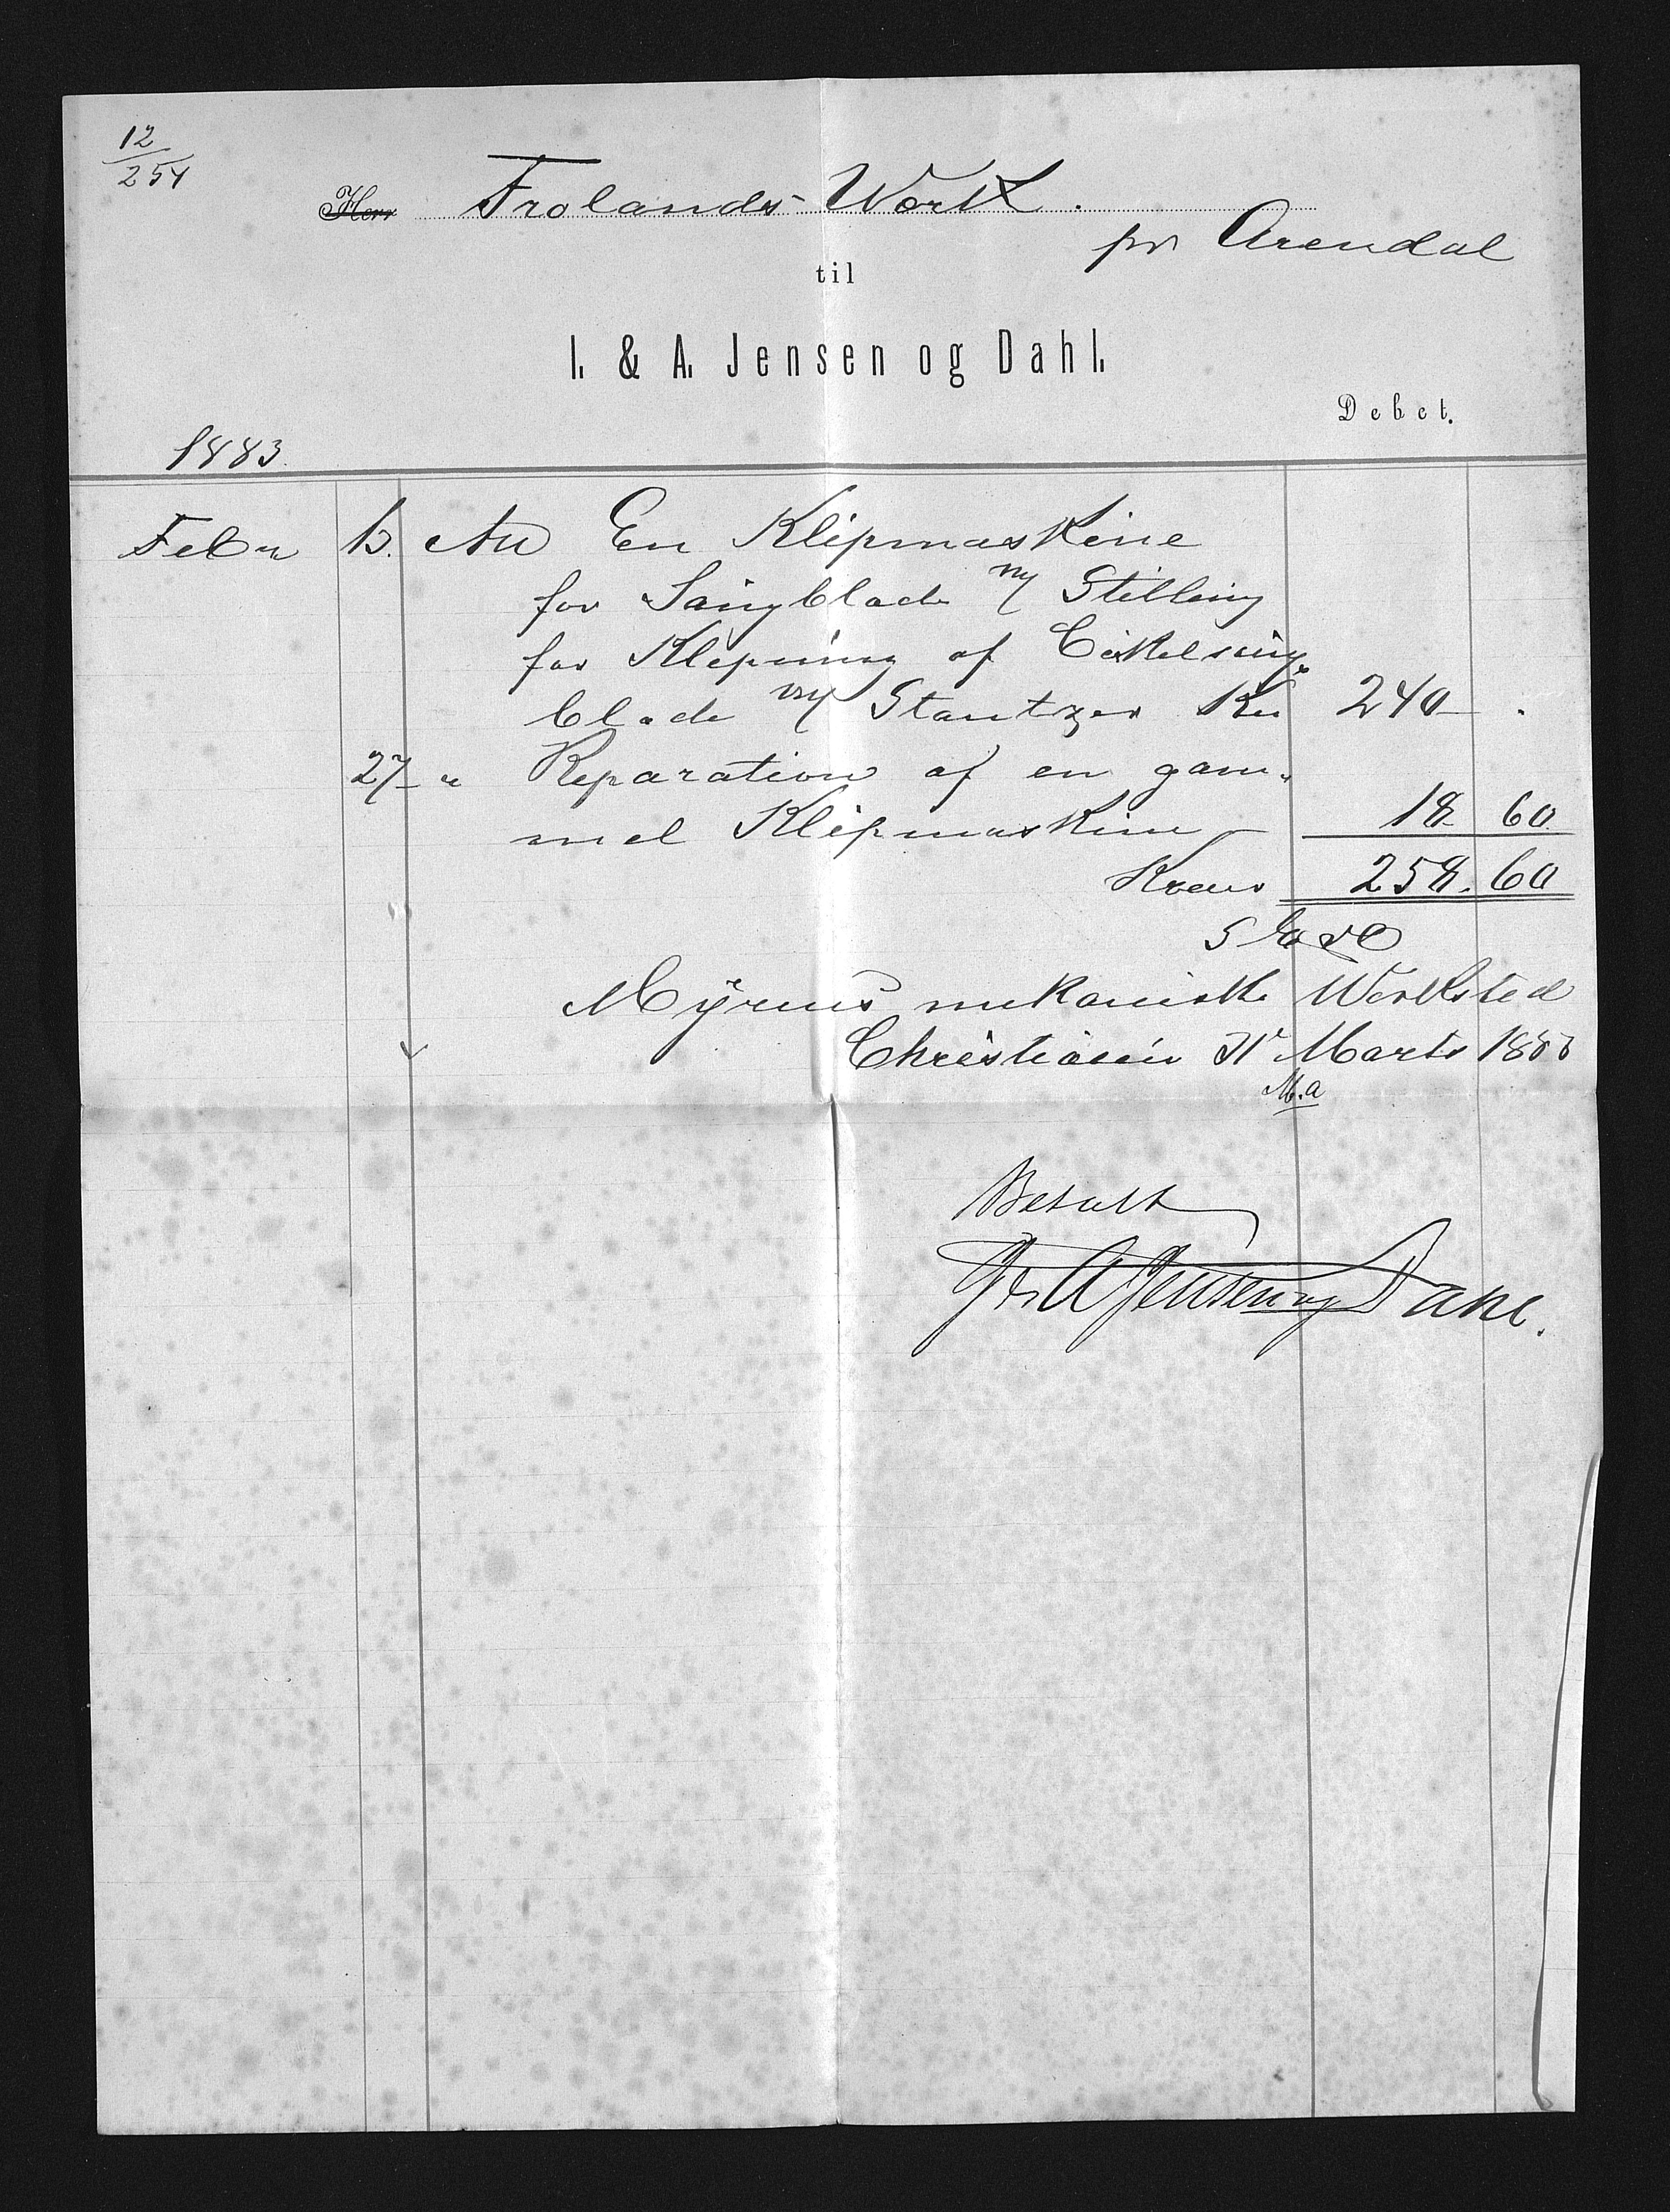 12
254
Herr Frolands Værk.
pr Arendal
til
I. & A. Jensen og Dahl.
Debet.
1883.
Febr 13. An En Klipmaskine
for Saugblade m/ Stilling
for Klipning af Cirkelsaug-
blade m/ Stantzer Kr 240 - .
27 - " Reparation af en gam-
mel Klipmaskine - 18 60
Kroner 258. 60
Myrens mekaniske Værksted
Christiania 31 Marts 1883
M.a
Betalt
I & A Jensen og Dahl.